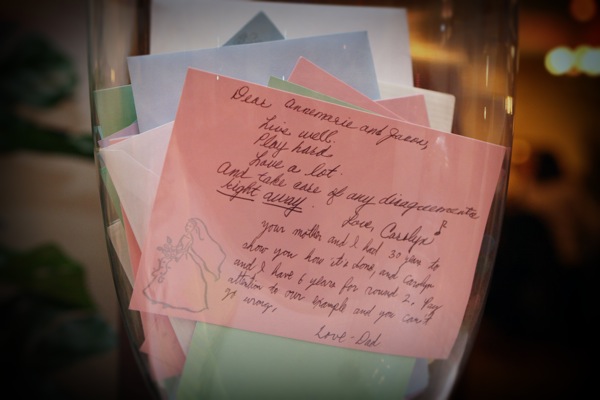 Dear Annemarie and James,
Live well.
Play hard.
Love a lot.
And take care of any disagreements
right away.
Love, Carolyn
your mother and I had 30 years to
show you how it's done, and Carolyn
and I have 6 years for round 2. Pay
attention to our example and you can't
go wrong.
Love - Dad